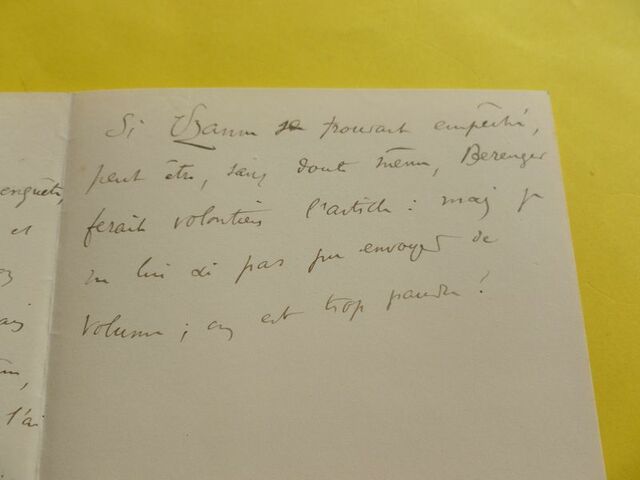 enquête,
et
Si Uzanne se trouvait empêché,
peut être, sans doute même, Berenger
ferait volontiers l'article : mais je
ne lui ai pas pu envoyer de
volume ; on est trop pauvre !
l'ai